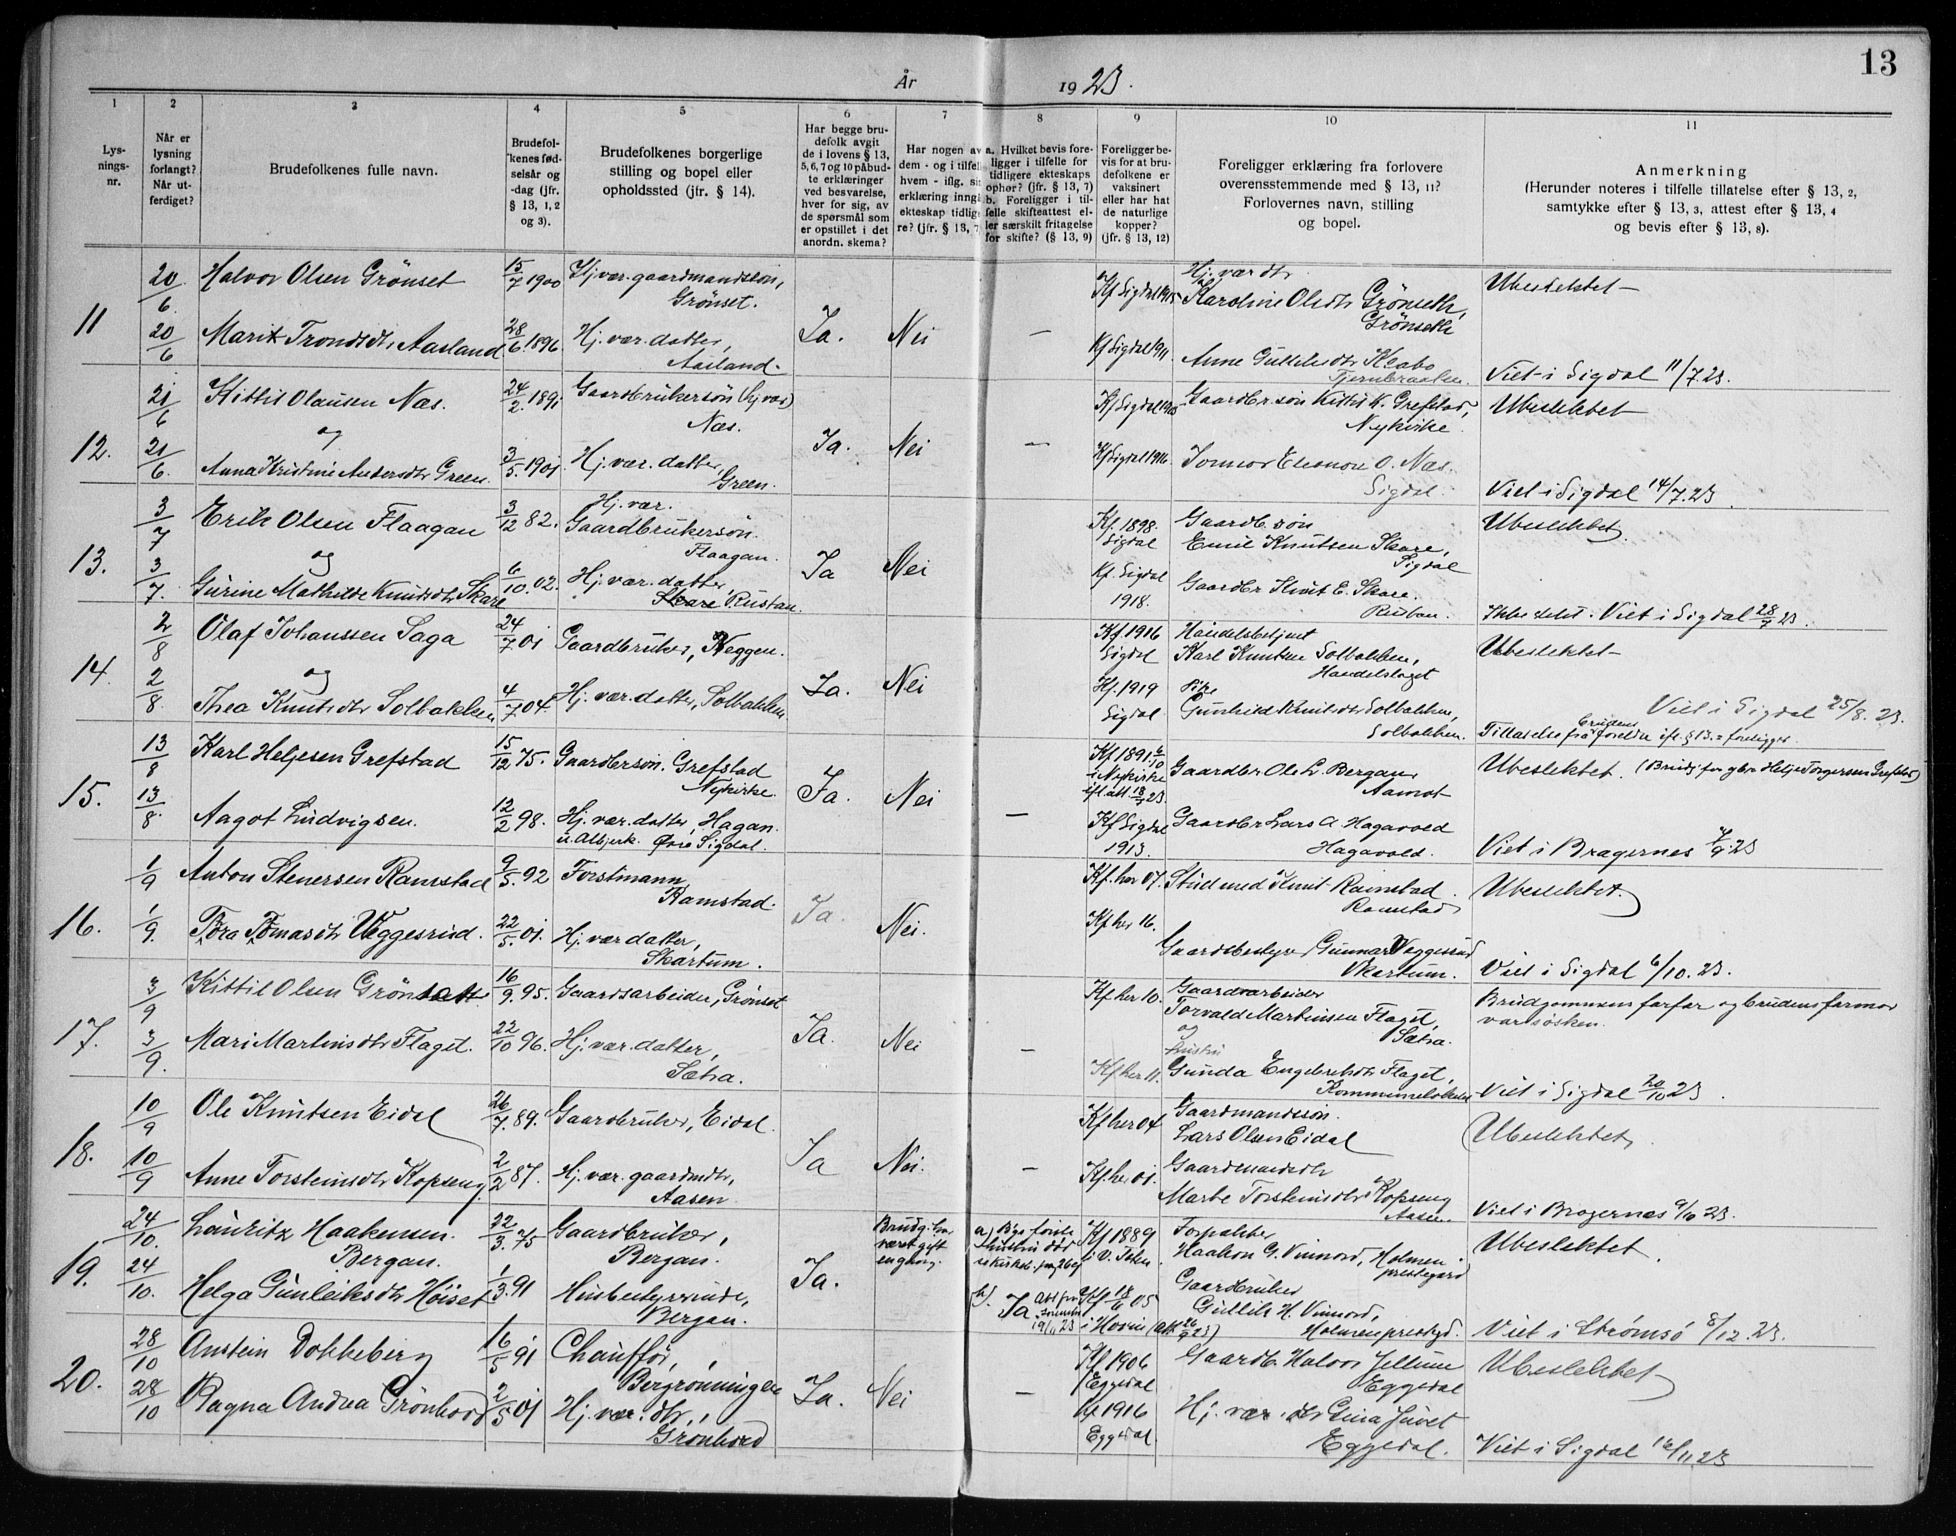 13
År 1923.
1 2 3 4 5 6 7 8 9 10 11
Lys-
nings-
nr.
Når er
lysning
forlangt?
Når ut-
ferdiget?
Brudefolkenes fulle navn.
Brudefol-
kenes fød-
selsår og
-dag (jfr.
§ 13, 1, 2
og 3).
Brudefolkenes borgerlige
stilling og bopel eller
opholdssted (jfr. § 14).
Har begge bru-
defolk avgit
de i lovens § 13,
5, 6, 7 og 10 påbud-
te erklæringer
ved besvarelse,
hver for sig, av
de spørsmål som
er opstillet i det
anordn. skema?
Har nogen av
dem - og i tilfelle
hvem - iflg. sin
erklæring inngåt
ekteskap tidlige-
re? (jfr. § 13, 7
a. Hvilket bevis fore-
ligger i tilfelle for
tidligere ekteskaps
ophør? (jfr. § 13, 7)
b. Foreligger i til-
felle skifteattest el-
ler særskilt fritagelse
for skifte? (§ 13, 9)
Foreligger be-
vis for at bru-
defolkene er
vaksinert
eller har hat
de naturlige
kopper?
(jfr. § 13, 12)
Foreligger erklæring fra forlovere
overensstemmende med § 13, 11?
Forlovernes navn, stilling
og bopel.
Anmerkning
(Herunder noteres i tilfelle tillatelse efter § 13, 2,
samtykke efter § 13, 3, attest efter § 13, 4
og bevis efter § 13, 8).
11
20/6 Halvor Olsen Grönset 15/7 1900 Hj. vær. gaardmandssön,
Grönset.
20/6 Marit Trondsdtr. Aasland 28/6 1896 Hj. vær. datter,
Aasland.
Ja. Nei —
Kf Sigdal 1915 Hj. vær dtr.
Karoline Olsdtr Grönseth,
Grönseth
Kf Sigdal 1911. Anne Gulliksdtr Kcabo
Tjernbraaten.
Ubeslektet
Viet i Sigdal 11/7.23.
12.
21/6 Kittil Olausen Næs. 24/2. 1891 Gaardbrukersön (hj. vær)
og Næs.
21/6. Anna Kristine Andersdtr Green. 3/5. 1901. Hj. vær. datter,
Green.
Ja. Nei —
Kf Sigdal 1905 Gaardbr. sön Kittil K. Grefstad,
Nykirke.
Kf Sigdal 1916. Jomfru Eleonore O. Næs.
Sigdal.
Ubeslektet
Viet i Sigdal 14/7.23.
13.
3/7 Erik Olsen Flaagan 3/12 82. Hj. vær.
Gaardbrukersön.
og Flaagan.
3/7. Gurine Mathilde Knudsdtr Skare 6/10. 02. Hj. vær. datter,
Skare Rustan.
Ja Nei
Kf. 1898.
Sigdal
Gaardb. sön
Emil Knutsen Skare,
Sigdal
Kf. Sigdal
1918.
Gaardbr Knut E. Skare.
Ubeslektet.
Viet i Sigdal 28/7 23.
14.
2/8 Olaf Johanssen Saga 24/7 01 Gaardbruker, Neggen.
og
2/8 Thea Knutsdtr Solbakken 4/7 04. Hj. vær. datter, Solbakken
Ja. Nei
Kf. 1916
Sigdal
Handelsbetjent
Karl Knutsen Solbakken,
Handelslaget
Kf. 1919
Sigdal
Pike
Gunhild Knutsdtr Solbakken,
Solbakken.
Ubeslektet
Viet i Sigdal 25/8. 23.
Tillatelse fra brudens foreldre ifl. § 13.2 foreligger
15.
13/8 Karl Helgesen Grefstad 15/12 75. Gaardbrsön. Grefstad
Nykirke.
13/8. Aagot Ludvigsen. 12/2 98. Hj. vær. datter, Hagan.
Övre Sigdal.
Ja. Nei —
Kf 1891 4/10
i Nykirke
ifl. att 18/7 23.
Gaardbr Ole L. Bergan,
Aamot
Kf Sigdal
1913.
Gaardbr Lars A. Hagavold
Hagavold.
Ubeslektet. (Brudg. far gbr Helge Torgersen Grefstad)
Viet i Bragernes 7/9. 23
16.
1/9 Anton Stenersen Ramstad 9/5. 92 Forstmann,
Ramstad.
1/9. Tora Tomasdtr Veggesrud. 22/5. 01. Hj. vær datter,
Skartum.
Ja. Nei.
Kf. her 07. Stud med Knut Ramstad.
Ramstad
Kf her 16.
Gaardsbestyrer Gunnar Veggesrud
Skartum.
Ubeslektet.
Viet i Sigdal 6/10. 23.
17.
3/9 Kittil Olsen Grönsett 16/9. 95. Gaardsarbeider, Grönset
3/9. Mari Martinsdtr Flaget. 22/10 96. Hj. vær. datter,
Sætra.
Ja. Nei —
Kf her 10. Gaardsarbeider
Torvald Martinsen Flaget,
og Sætra.
hustru
Kf her 11. Gunda Engebretsdtr Flaget,
Kommunelokalet
Brudgommens farfar og brudens farmor
var søsken.
Viet i Sigdal 20/10 23.
18.
10/9 Ole Knutsen Eidal 26/7. 89. Gaardbruker, Eidal.
10/9 Anne Torsteinsdtr Kopseng. 2/2 87. Hj. vær. gaardmdtr,
Aasen
Ja Nei. —
Kf her 04 Gaardmandssön.
Lars Olsen Eidal
Kf. her 01. Gaardmandsdtr
Marte Torsteinsdtr Kopseng
Aasen.
Ubeslektet
Viet i Bragernes 9/10 23.
19.
24/10. Lauritz Haakensen 22/3. 75 Gaardbruker,
Bergan. Bergan.
24/10. Helga Gunleiksdtr Höiset 1/3. 91 Husbestyrerinde,
Bergan.
Ja.
Brudg. har
været gift
en gang.
b). Ja.
Kf 1889
Haakon G. Vinnord, Holmen
prestegård
Kf 18/6 05
i Hovin (att 26/9 23)
Gaardbruker
Gullik H. Vinnord,
Holmen prestegd.
Ubeslektet
Viet i Strömsö 8/12. 23.
20.
28/10 Anstein Dokkeberg 16/5 91 Chauffør,
Bergrønningen
28/10 Ragna Andrea Grönhovd 2/5 01 Hj. vær. dtr.,
Grönhovd
Ja. Nei —
Kf 1906
Eggedal
Gaardb. Halvor Jellum
Eggedal
Kf 1916
Eggedal.
Hj. vær. dtr Gina Juvet
Eggedal.
Ubeslektet
Viet i Sigdal 16/11 23